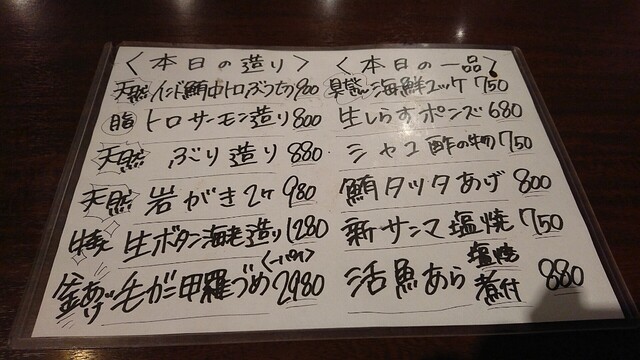 〈本日の造り〉
天然 インド鮪中トロぶつ切 900
脂 トロサーモン造り 800
天然 ぶり造り 880
天然 岩がき2ケ 980
特大 生ボタン海老造り 1280
釜あげ 毛ガニ甲羅づめ〈一パイ〉 2980
〈本日の一品〉
海鮮ユッケ 750
生しらすポンズ 680
シャコ酢の物 750
鮪タツタあげ 800
新サンマ塩焼 750
活魚あら 塩焼 煮付 880